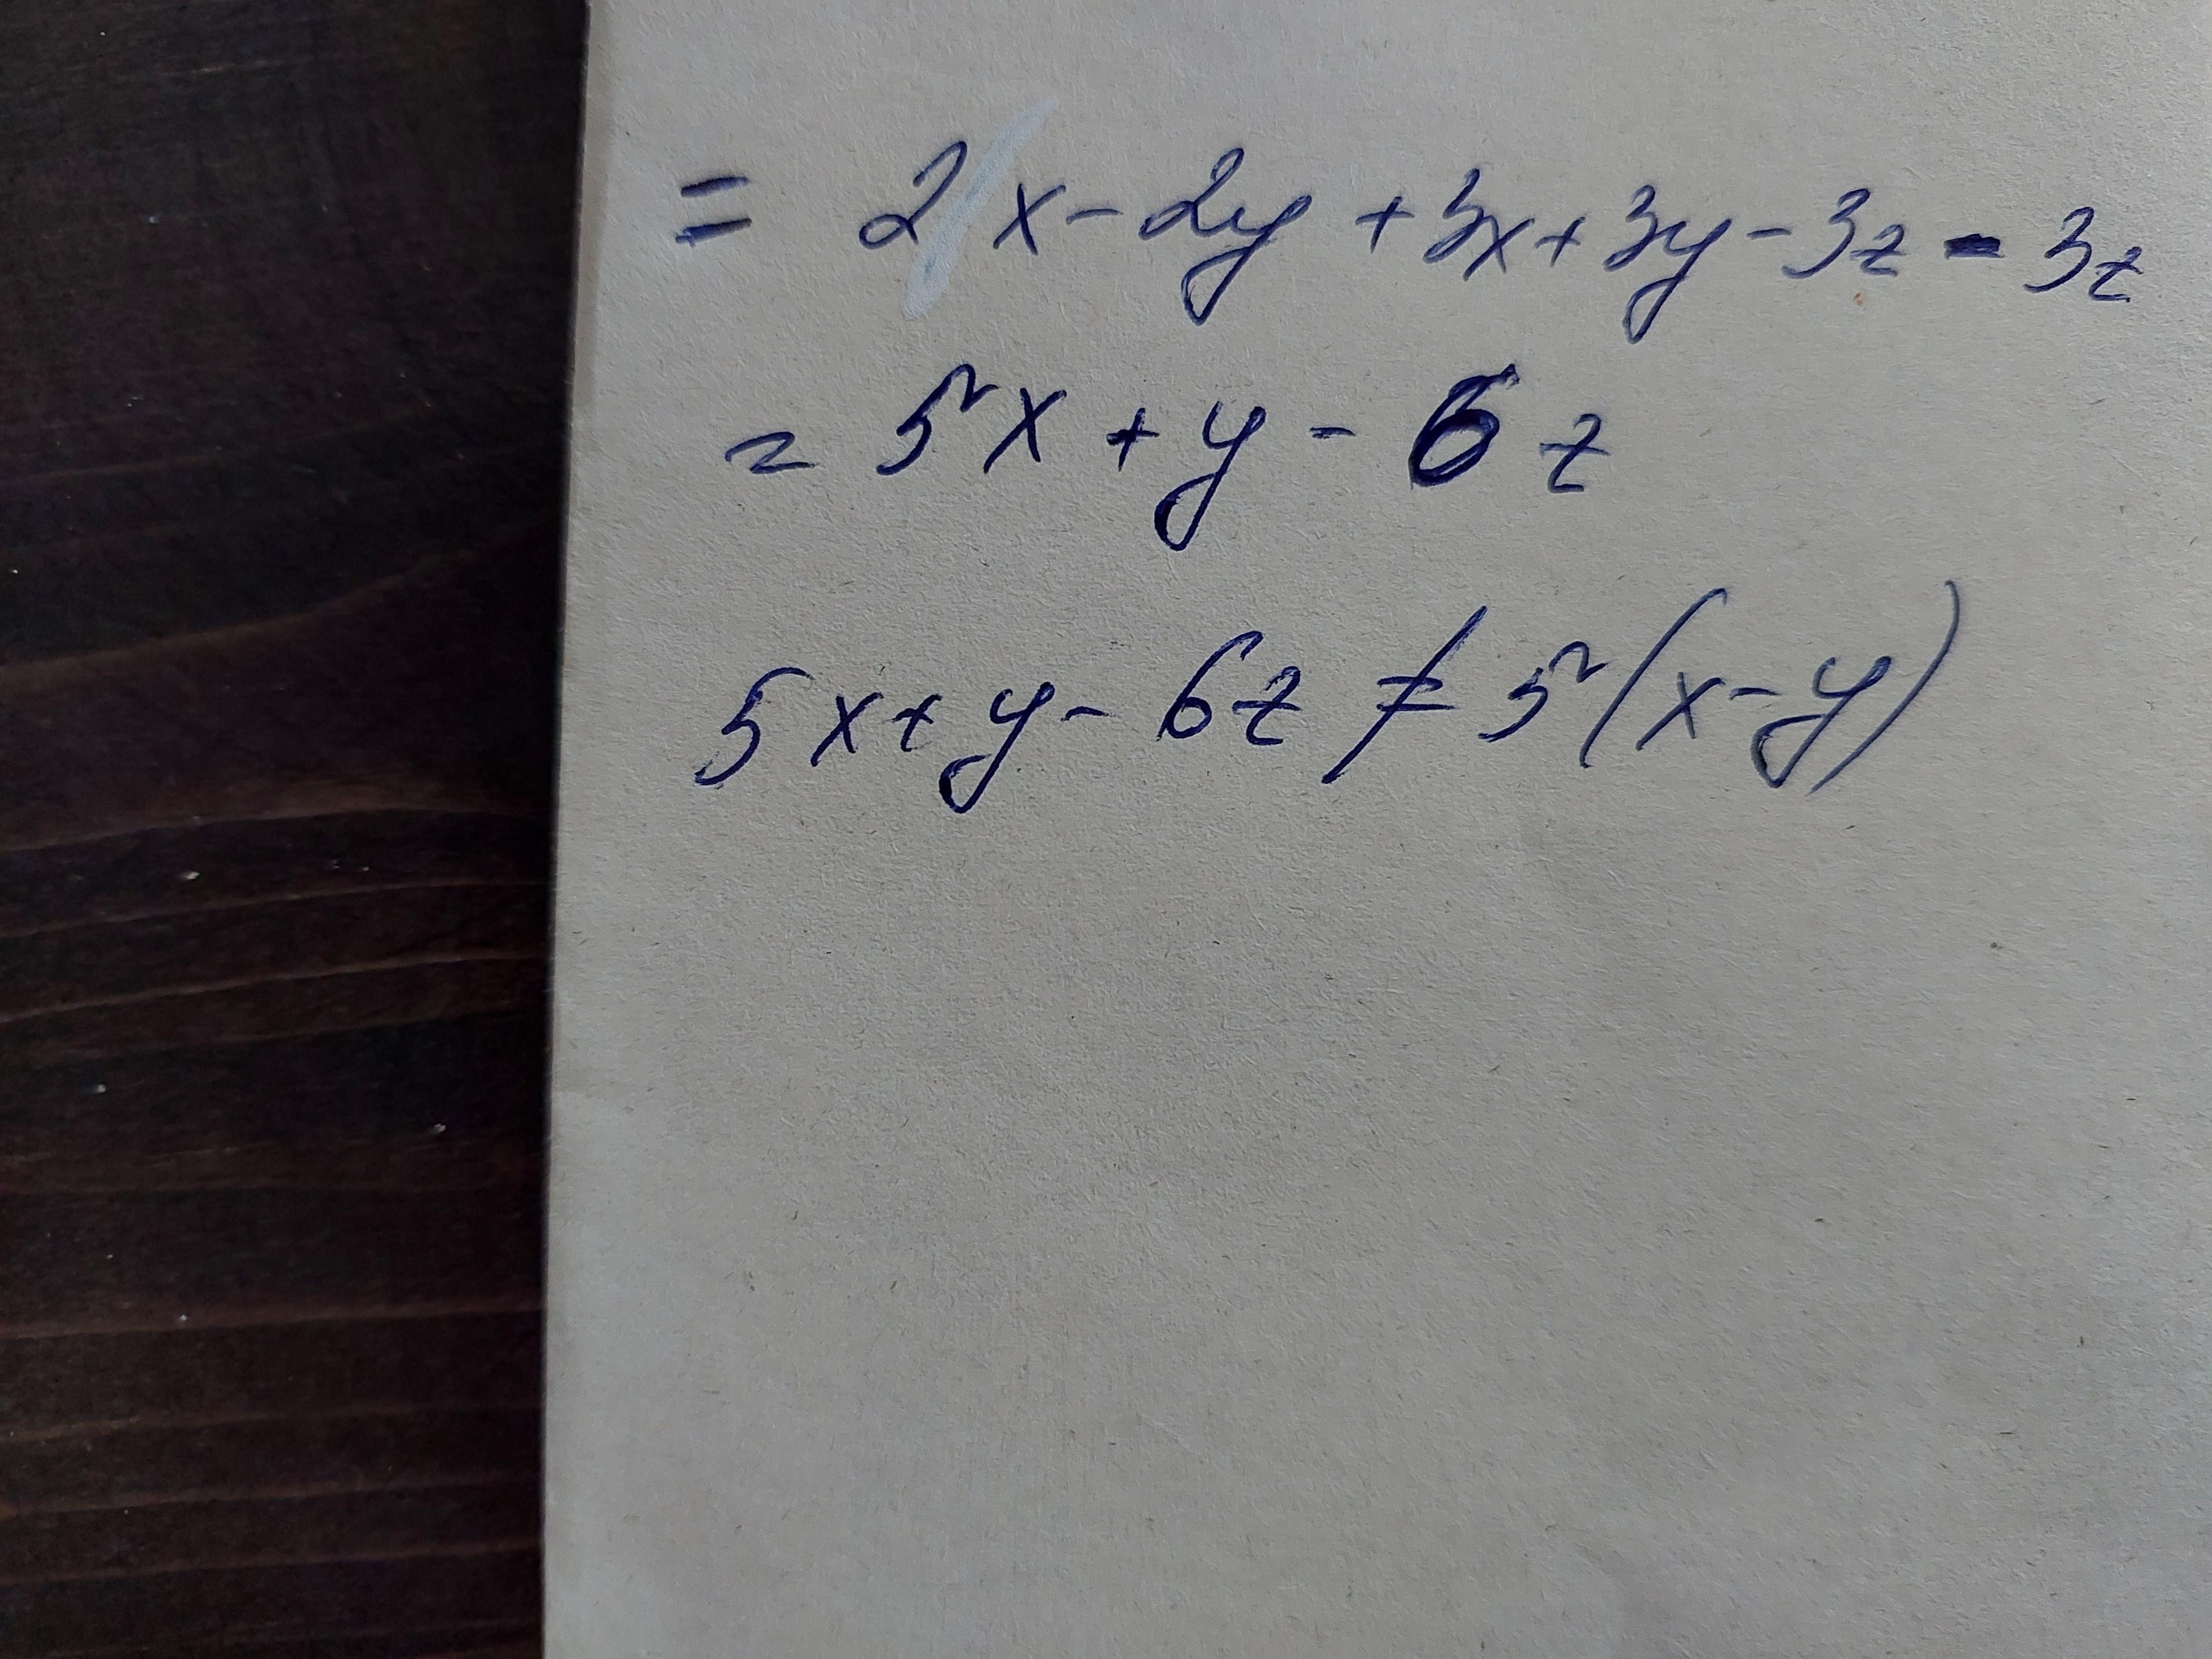 = 2x - 2y + 3x + 3y - 3z - 3z
= 5x + y - 6z
5x + y - 6z ≠ 5(x - y)